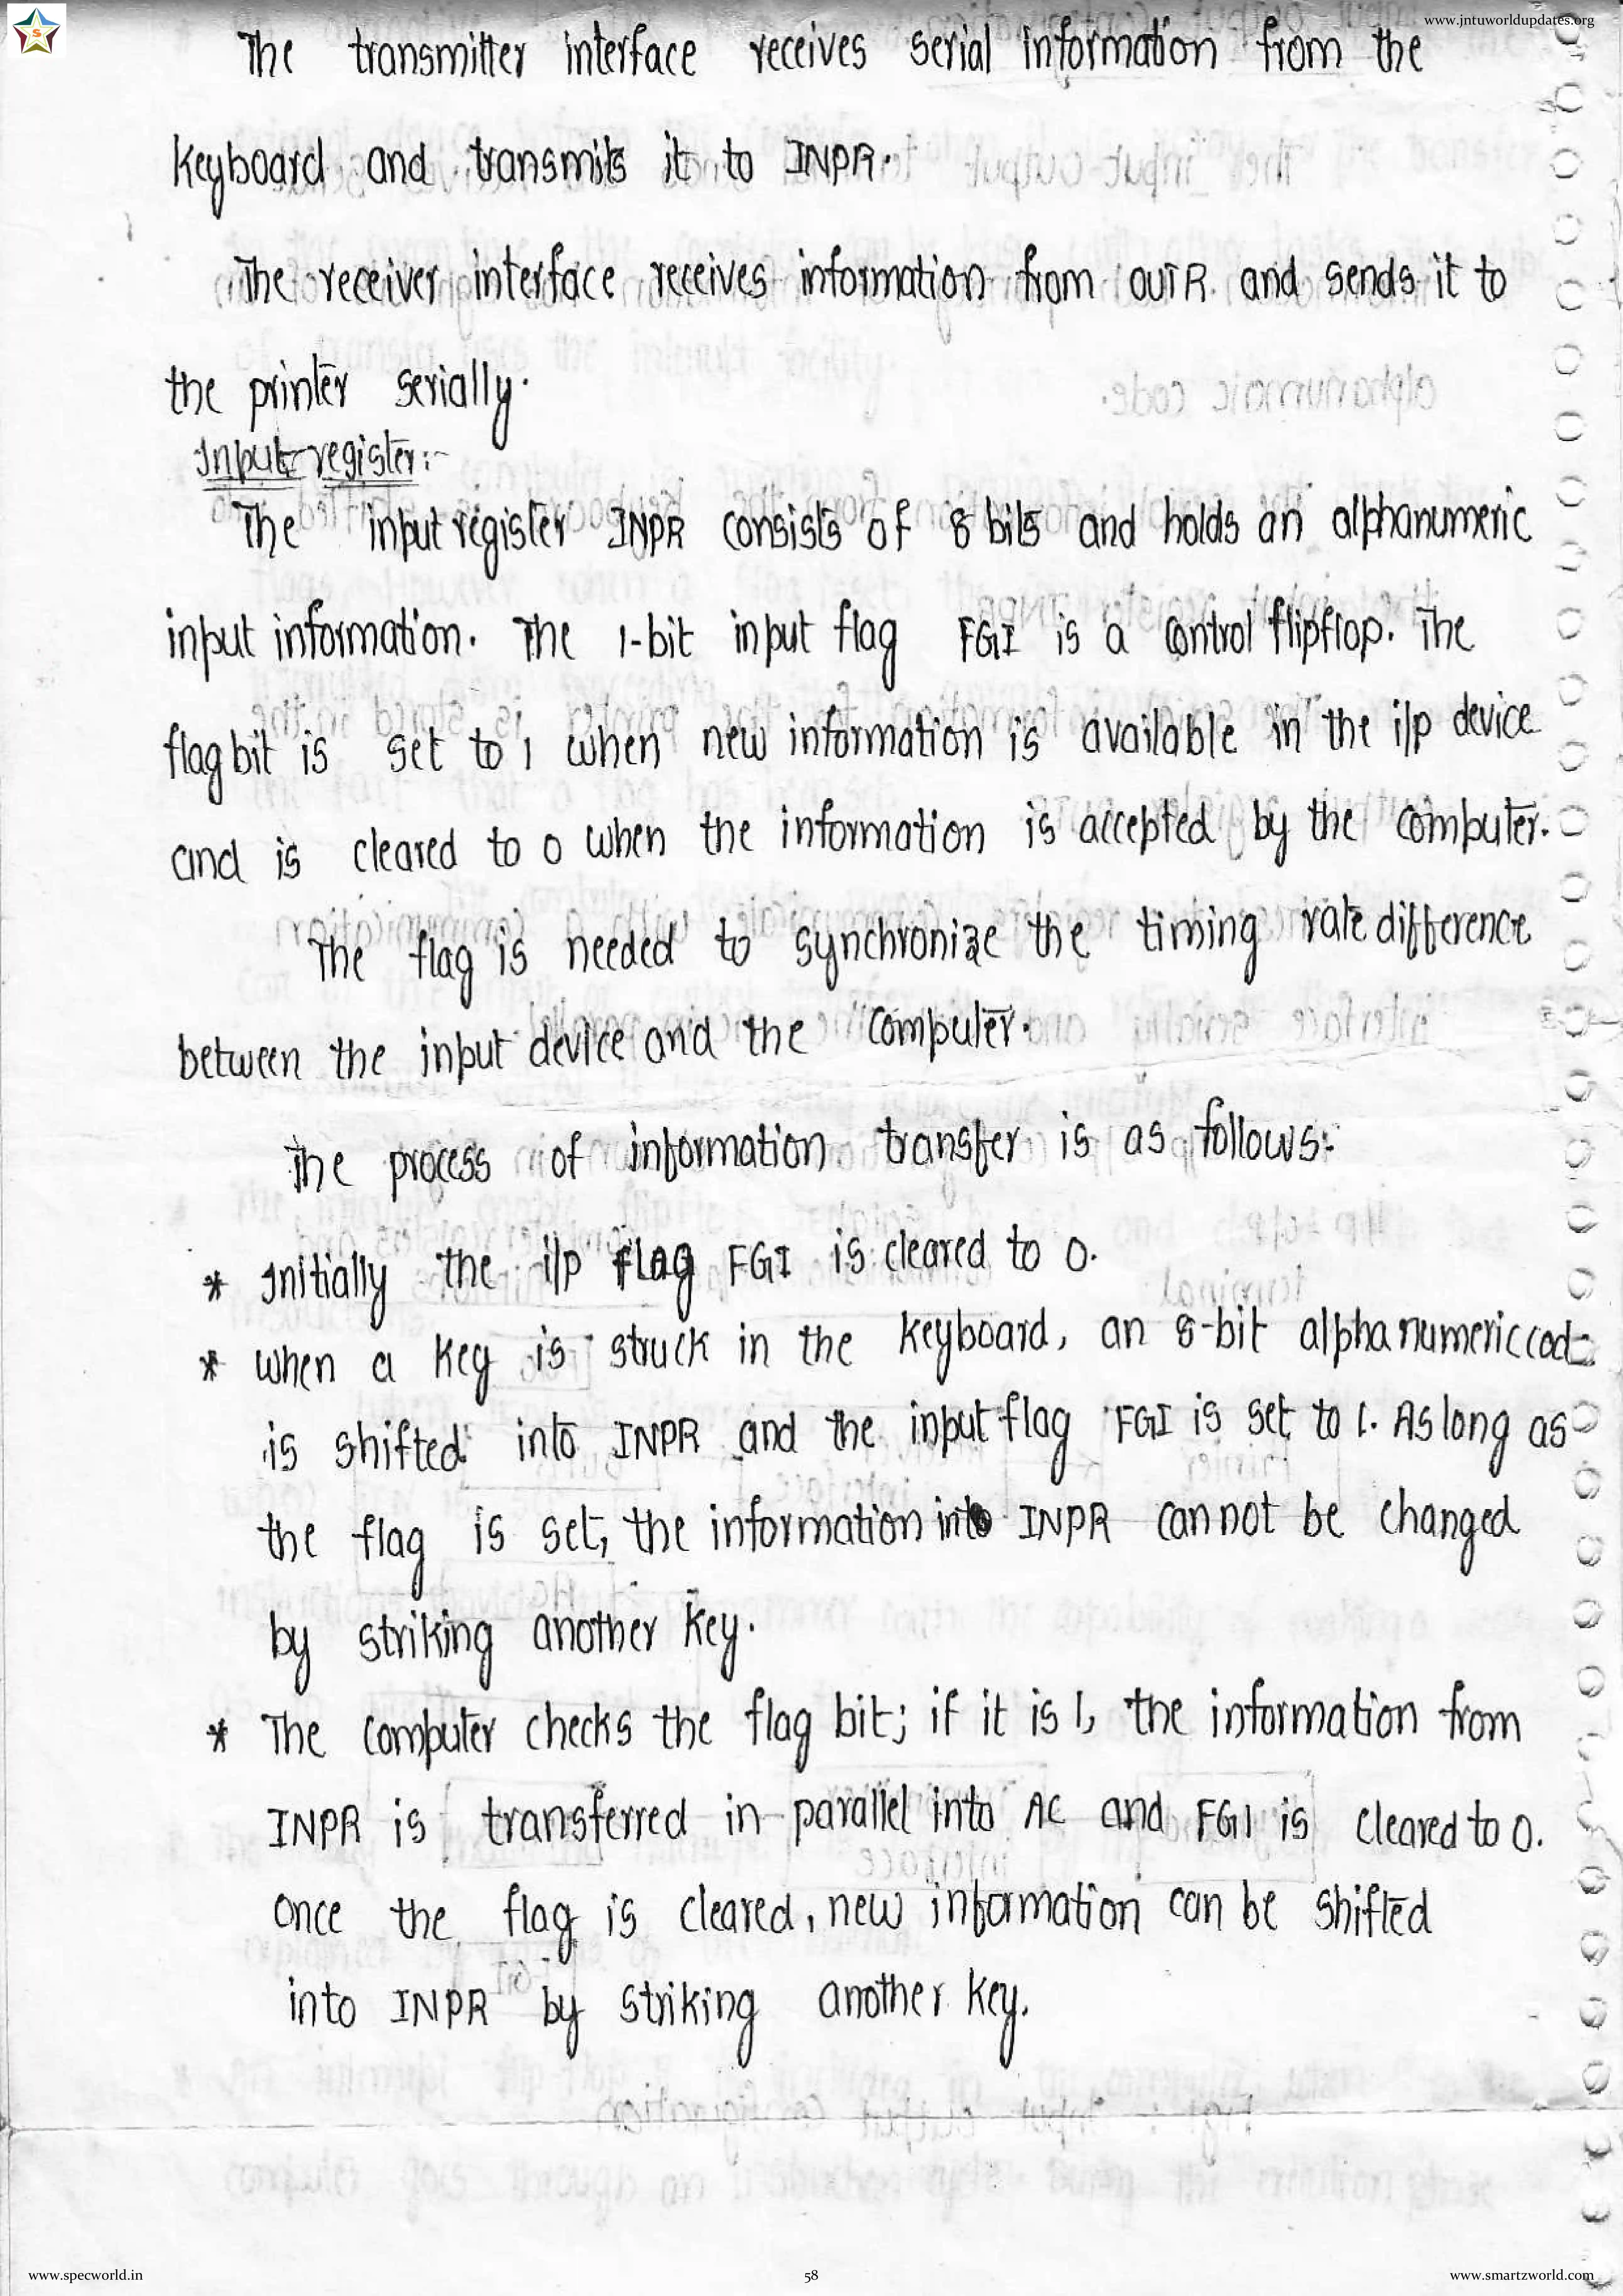 www.jntuworldupdates.org
S
The transmitter interface receives serial information from the
keyboard and transmits it to INPR.
The receiver interface receives information from OUTR and sends it to
the printer serially.
Input register:-
The input register INPR consists of 8 bits and holds an alphanumeric
input information. The 1-bit input flag FGI is a control flipflop. The
flag bit is set to 1 when new information is available in the i/p device
and is cleared to 0 when the information is accepted by the computer.
The flag is needed to synchronize the timing rate difference
between the input device and the computer.
The process of information transfer is as follows:-
* Initially the i/p flag FGI is cleared to 0.
* when a key is struck in the keyboard, an 8-bit alphanumeric code
is shifted into INPR and the input flag FGI is set to 1. As long as
the flag is set, the information into INPR cannot be changed
by striking another key.
* The computer checks the flag bit; if it is 1, the information from
INPR is transferred in parallel into AC and FGI is cleared to 0.
Once the flag is cleared, new information can be shifted
into INPR by striking another key.
www.specworld.in
58
www.smartzworld.com